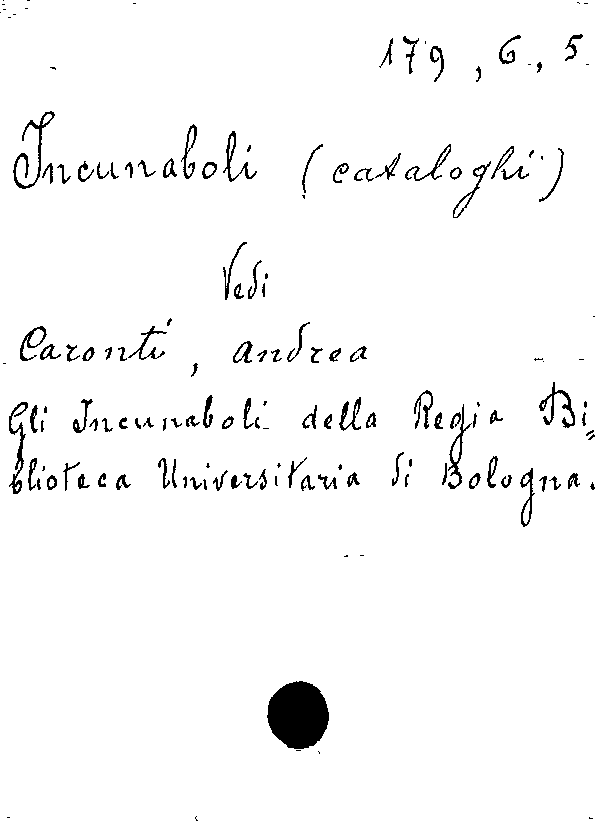 179, 6., 5
Incunaboli (cataloghi)
Vedi
Caronti, Andrea
Gli Incunaboli della Regia Bi=
blioteca Universitaria di Bologna.